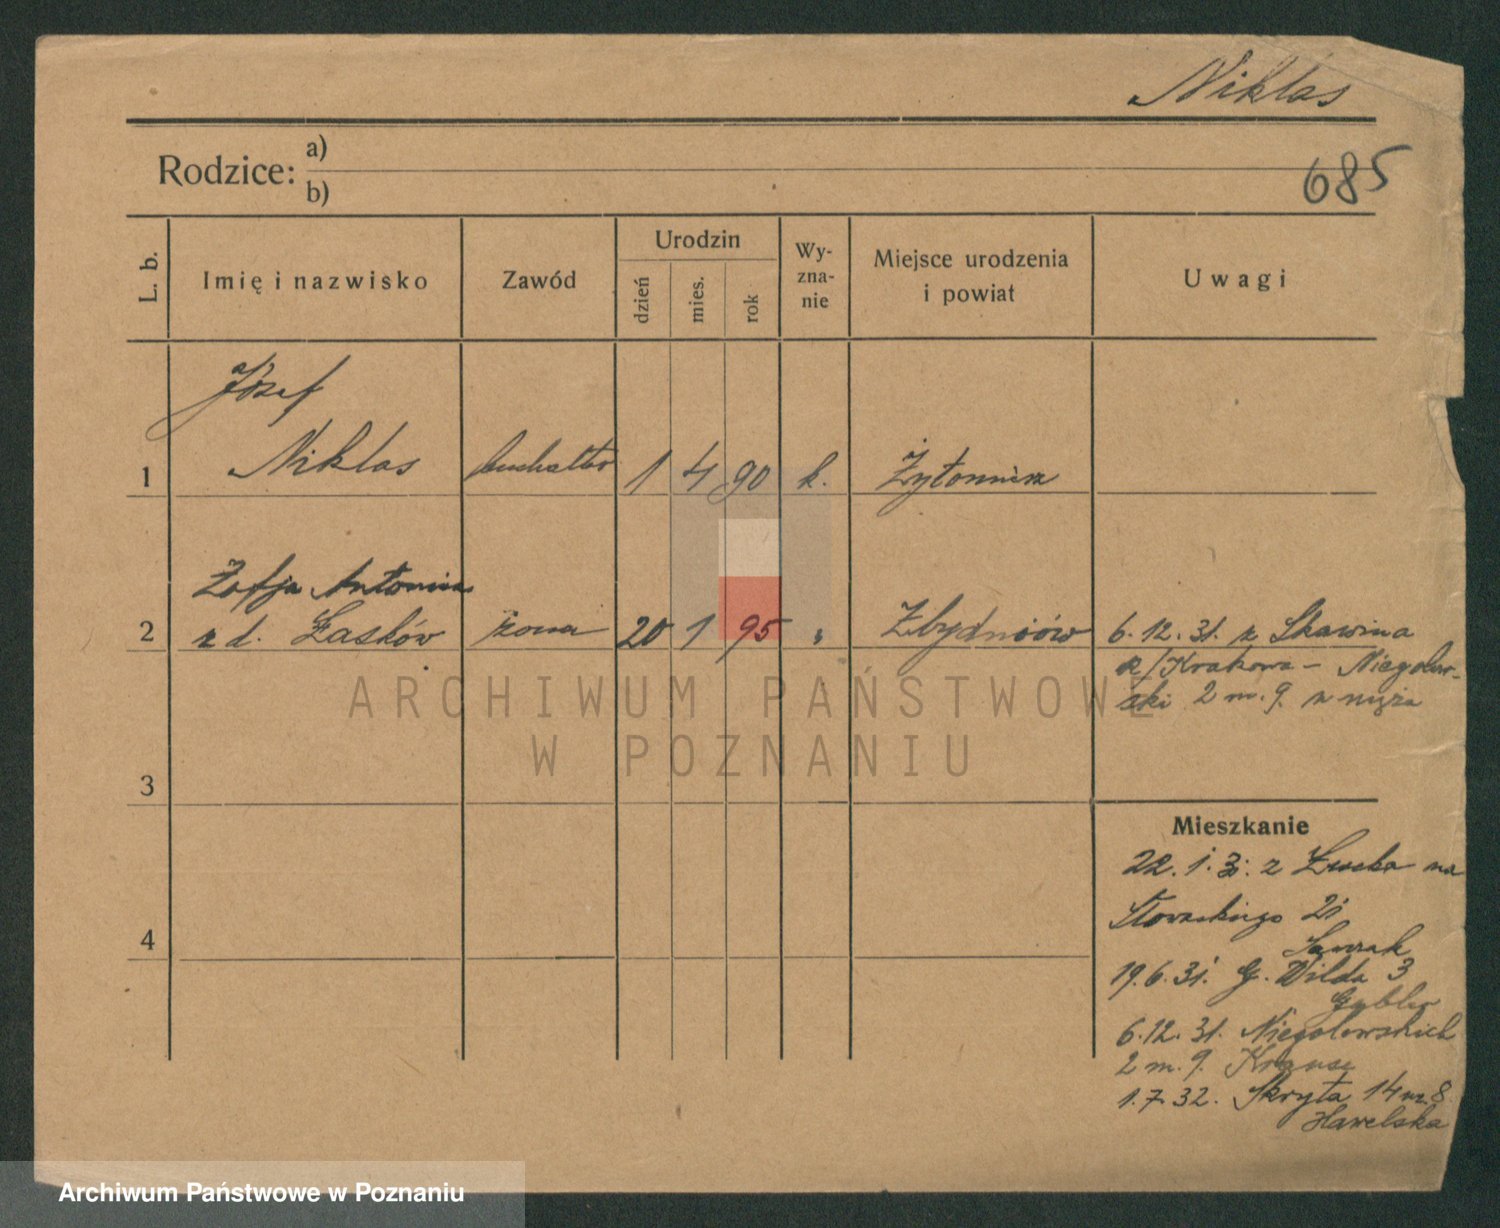 Niklas
Rodzice: a)
b)
685
L. b.
Imię i nazwisko
Zawód
Urodzin
dzień
mies.
rok
Wy-
zna-
nie
Miejsce urodzenia
i powiat
Uwagi
Józef
1 Niklas buchalter 1 4 90 k. Żytomierz
Zofja Antonina
2 z d. Łasków żona 20 1 95 " Zbydniów 6.12.31. z Skawina
z/Krakowa - Niegolew-
ski 2 m. 9. z męża
3
4
Mieszkanie
22.1.31. z Łucka na
Słowackiego 21
19.6.31. G. Wilda 3
6.12.31. Niegolewskich
2 m. 9. Krause
1.7.32. Skryta 14 m. 8
Hawelska
ARCHIWUM PAŃSTWOWE
W POZNANIU
Archiwum Państwowe w Poznaniu